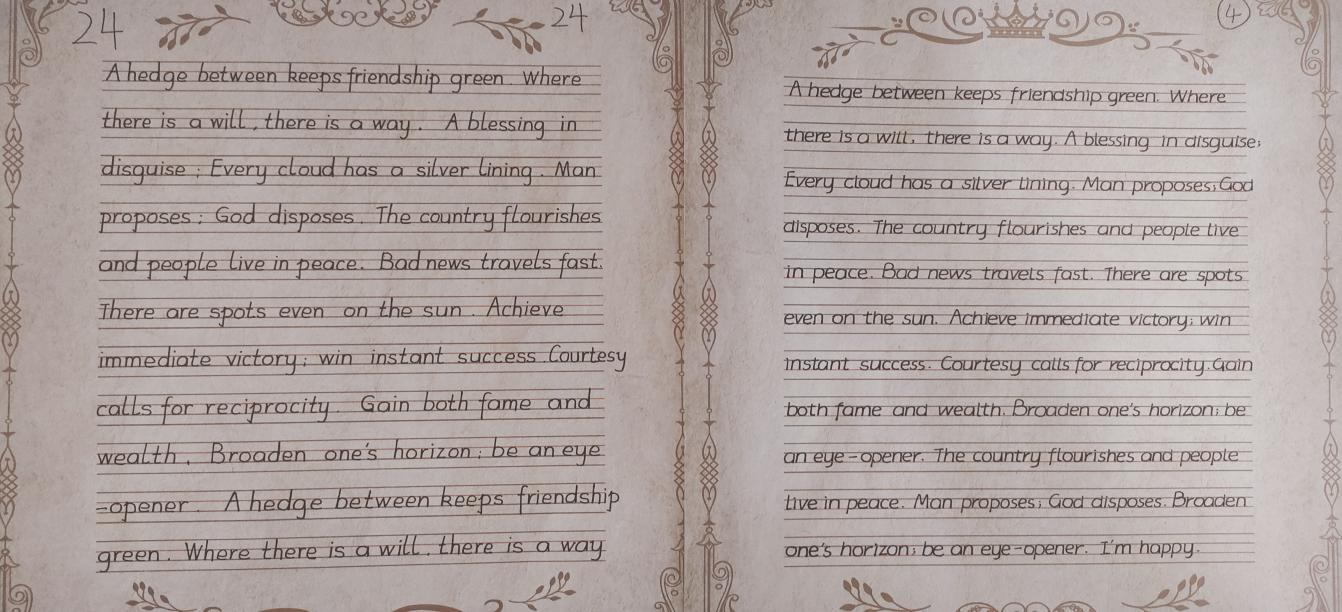 24
24
A hedge between keeps friendship green. Where
there is a will, there is a way. A blessing in
disguise; Every cloud has a silver lining. Man
proposes; God disposes. The country flourishes
and people live in peace. Bad news travels fast.
There are spots even on the sun. Achieve
immediate victory; win instant success. Courtesy
calls for reciprocity. Gain both fame and
wealth. Broaden one's horizon; be an eye
-opener. A hedge between keeps friendship
green. Where there is a will, there is a way
4
A hedge between keeps friendship green. Where
there is a will, there is a way. A blessing in disguise;
Every cloud has a silver lining. Man proposes; God
disposes. The country flourishes and people live
in peace. Bad news travels fast. There are spots
even on the sun. Achieve immediate victory; win
instant success. Courtesy calls for reciprocity. Gain
both fame and wealth. Broaden one's horizon; be
an eye-opener. The country flourishes and people
live in peace. Man proposes; God disposes. Broaden
one's horizon; be an eye-opener. I'm happy.